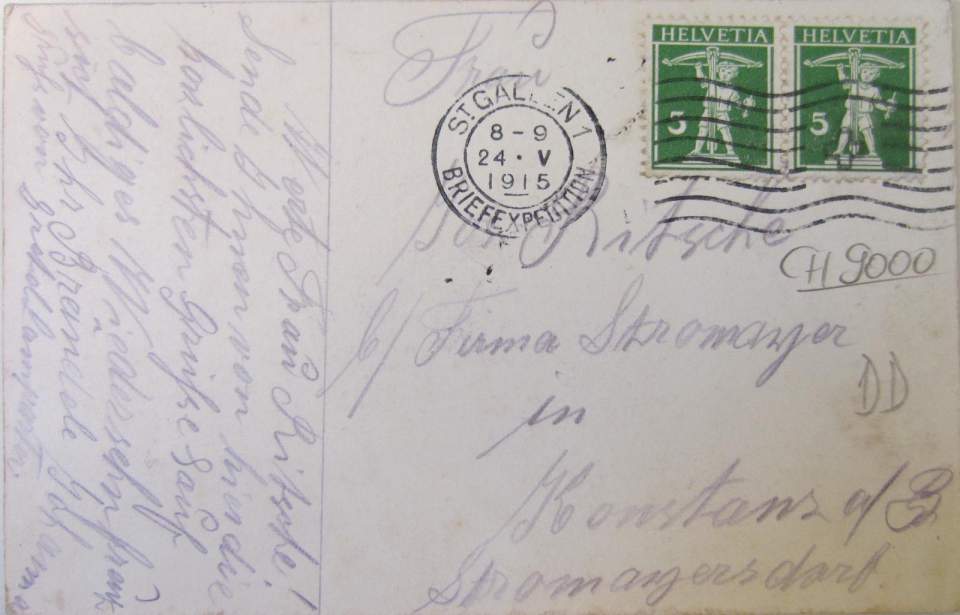 HELVETIA
HELVETIA
5
5
ST GALLEN 1
8-9
24 · V
1915
BRIEFEXPEDITION
Frau
Ritzsche
b/ Firma Stromayer
in
Konstanz a/B
Stromayersdorf.
CH 9000
DD
Werte Frau Ritzsche!
Sende Ihnen von hier die
herzlichsten Grüße. Auf
baldiges Wiedersehn freut
sich Ihr Brändle Johann
Gruß von